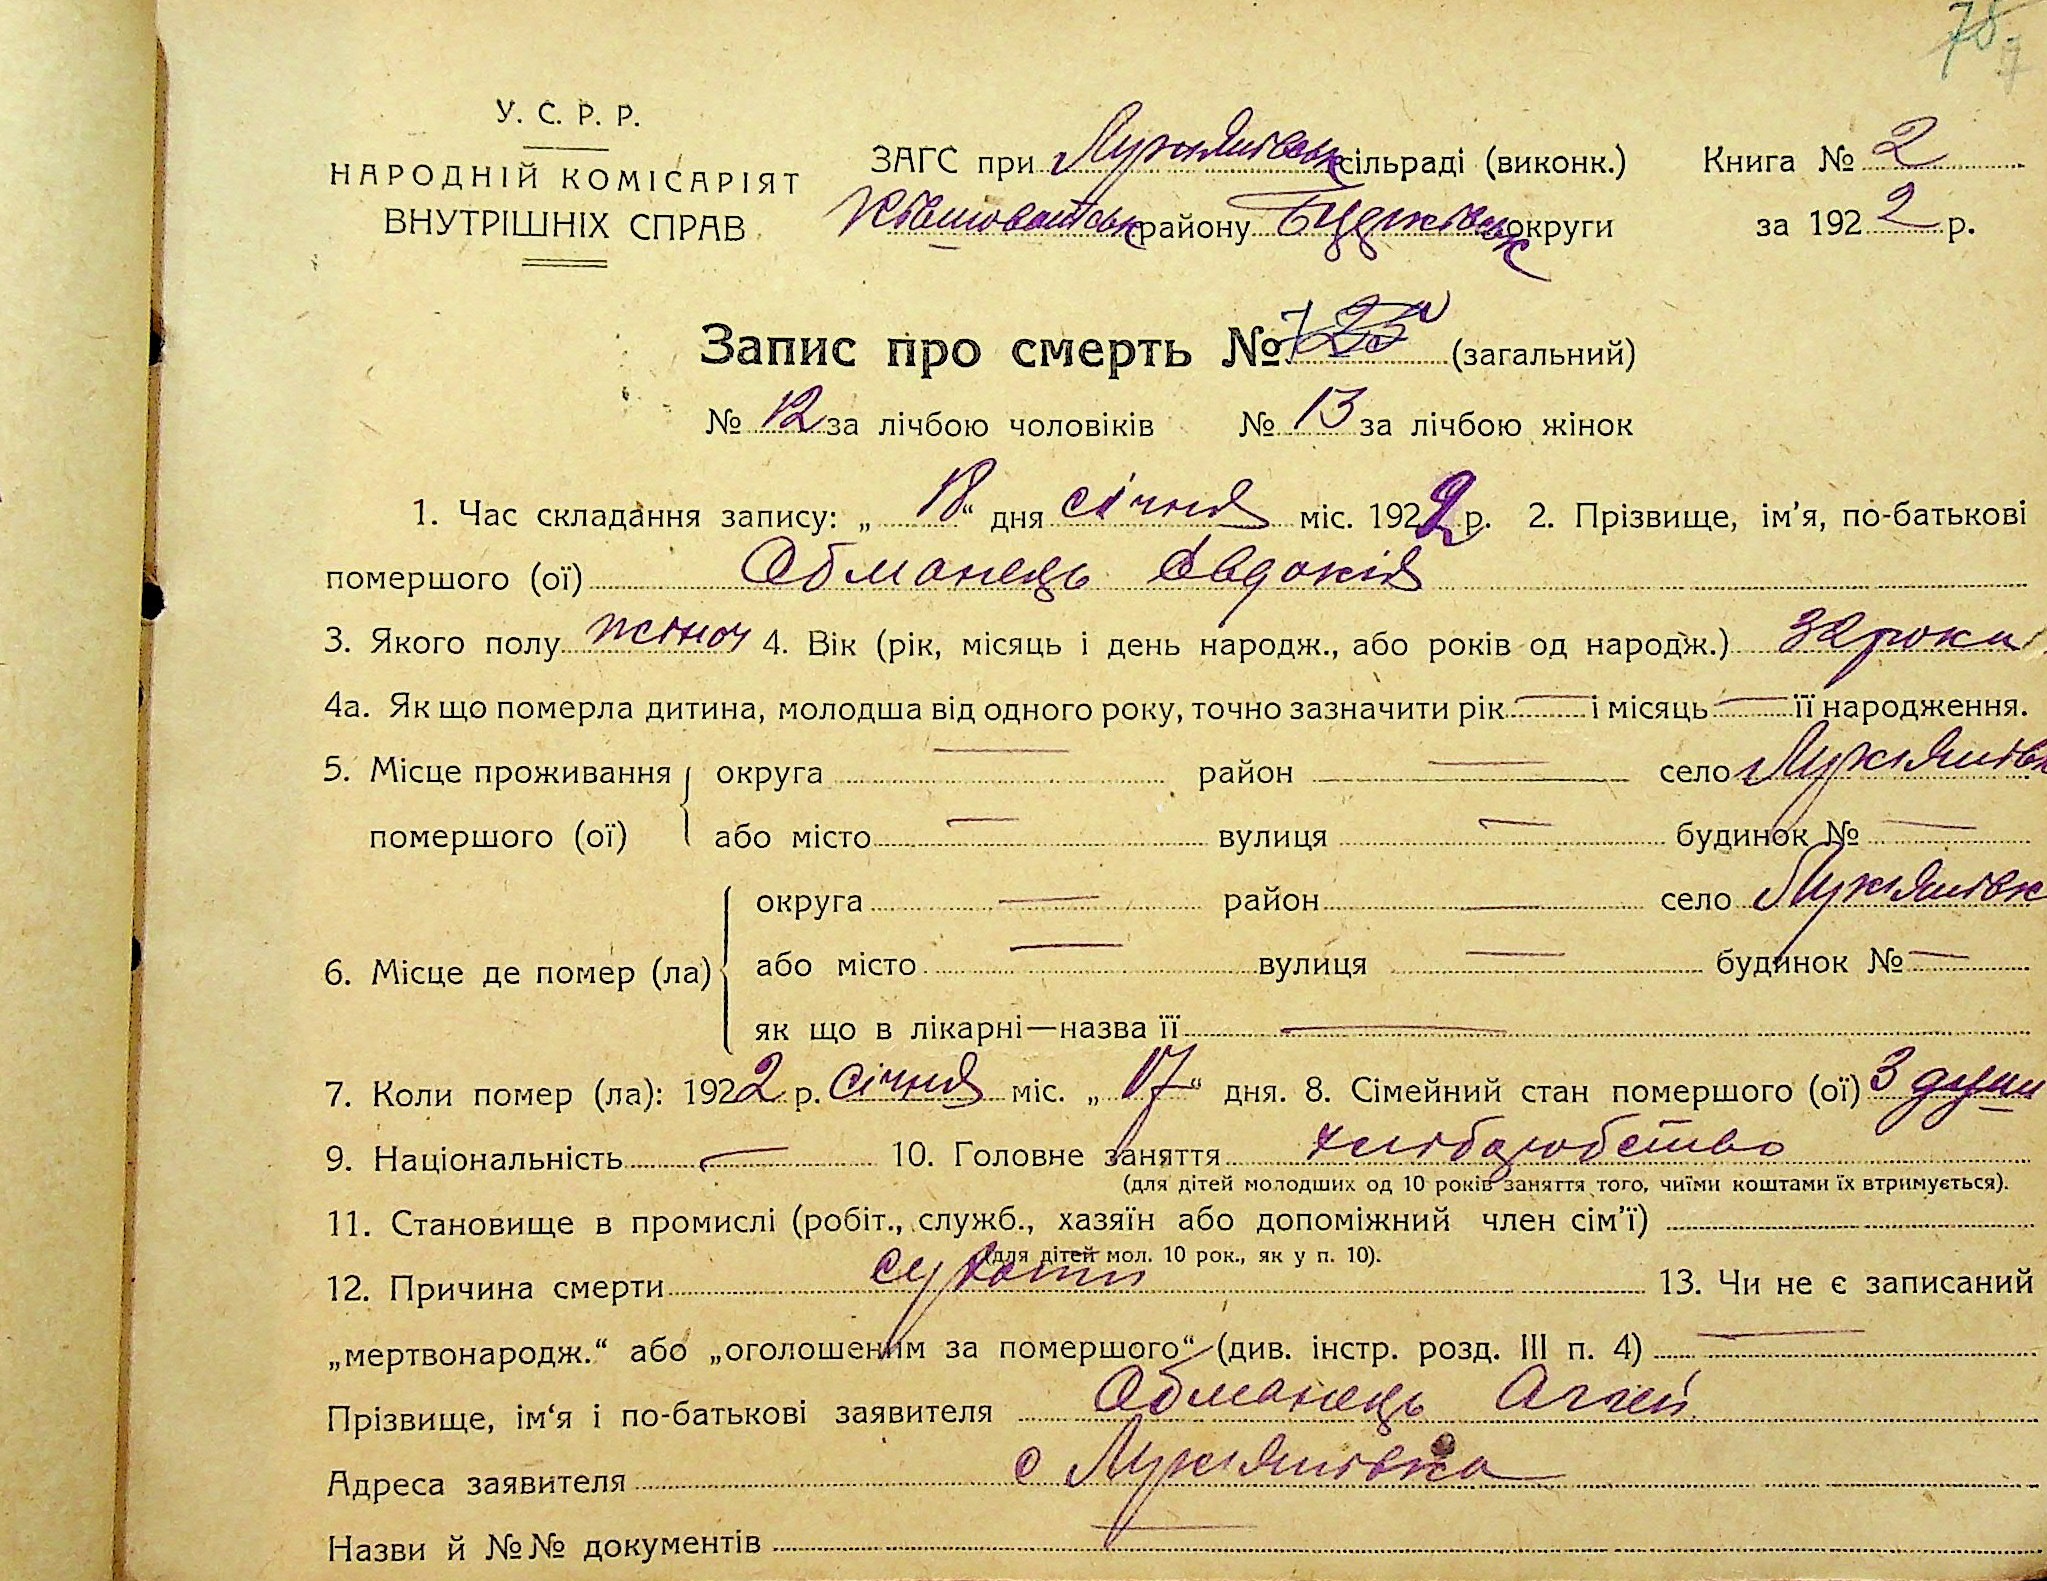 78
У. С. Р. Р.
НАРОДНІЙ КОМІСАРІЯТ
ВНУТРІШНІХ СПРАВ
ЗАГС при Лукянівськ сільраді (виконк.) Книга № 2
району округи за 1922 р.
Запис про смерть № (загальний)
№ 12 за лічбою чоловіків № 13 за лічбою жінок
1. Час складання запису: „18“ дня січня міс. 1922 р. 2. Прізвище, ім'я, по-батькові
помершого (ої) Обманець Євдокія
3. Якого полу жіноч 4. Вік (рік, місяць і день народж., або років од народж.) 32 роки
4а. Як що померла дитина, молодша від одного року, точно зазначити рік — і місяць — її народження.
5. Місце проживання округа — район — село Лукянівк
помершого (ої) або місто — вулиця — будинок № —
округа — район — село Лукянівк
6. Місце де помер (ла) або місто — вулиця — будинок № —
як що в лікарні—назва її —
7. Коли помер (ла): 1922 р. січня міс. „17“ дня. 8. Сімейний стан помершого (ої) 3 душі
9. Національність — 10. Головне заняття хліборобство
(для дітей молодших од 10 років заняття того, чиїми коштами їх втримується).
11. Становище в промислі (робіт., служб., хазяїн або допоміжний член сім'ї)
(для дітей мол. 10 рок., як у п. 10).
12. Причина смерти сухоти 13. Чи не є записаний
„мертвонародж.“ або „оголошеним за помершого“ (див. інстр. розд. III п. 4) —
Прізвище, ім'я і по-батькові заявителя Обманець
Адреса заявителя с Лукянівка
Назви й №№ документів —